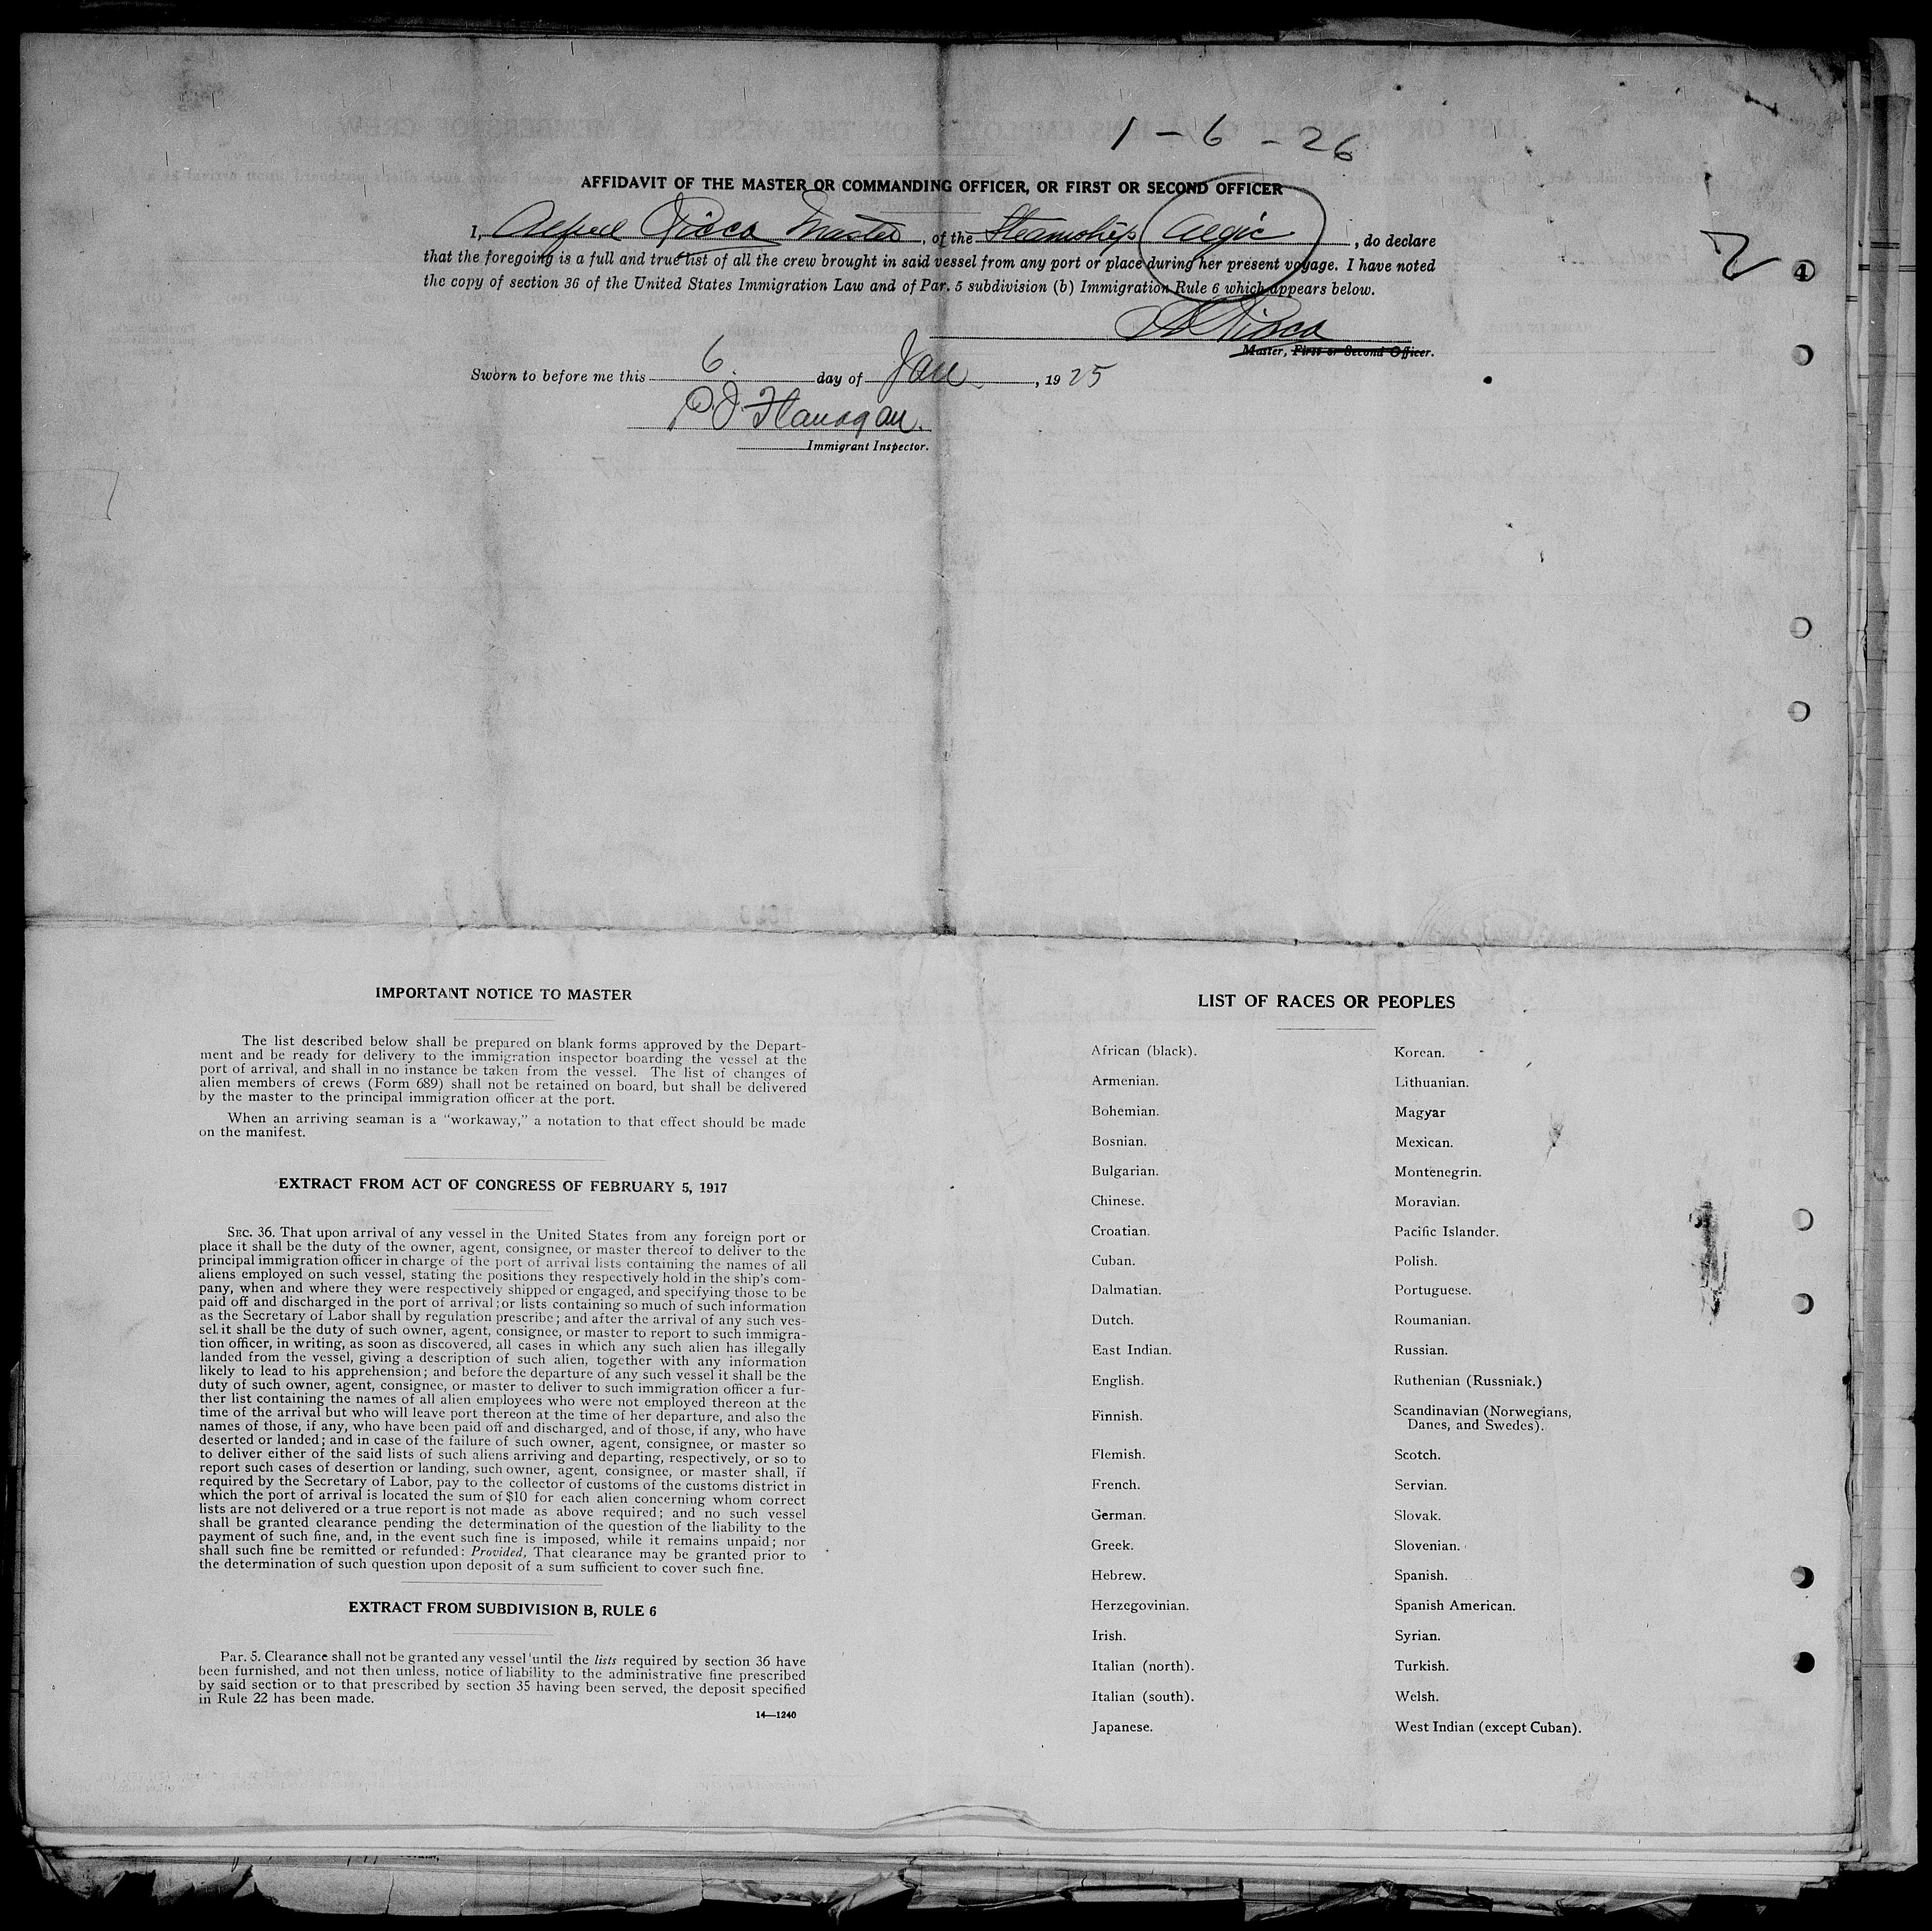 1 - 6 - 26
AFFIDAVIT OF THE MASTER OR COMMANDING OFFICER, OR FIRST OR SECOND OFFICER
I, Alfred Master, of the Steamship Algic, do declare
that the foregoing is a full and true list of all the crew brought in said vessel from any port or place during her present voyage. I have noted
the copy of section 36 of the United States Immigration Law and of Par. 5 subdivision (b) Immigration Rule 6 which appears below.
2
4
Master, First or Second Officer.
Sworn to before me this 6. day of Jan, 1925
P. J. Flanagan.
Immigrant Inspector.
IMPORTANT NOTICE TO MASTER
The list described below shall be prepared on blank forms approved by the Depart-
ment and be ready for delivery to the immigration inspector boarding the vessel at the
port of arrival, and shall in no instance be taken from the vessel. The list of changes of
alien members of crews (Form 689) shall not be retained on board, but shall be delivered
by the master to the principal immigration officer at the port.
When an arriving seaman is a "workaway," a notation to that effect should be made
on the manifest.
EXTRACT FROM ACT OF CONGRESS OF FEBRUARY 5, 1917
SEC. 36. That upon arrival of any vessel in the United States from any foreign port or
place it shall be the duty of the owner, agent, consignee, or master thereof to deliver to the
principal immigration officer in charge of the port of arrival lists containing the names of all
aliens employed on such vessel, stating the positions they respectively hold in the ship's com-
pany, when and where they were respectively shipped or engaged, and specifying those to be
paid off and discharged in the port of arrival; or lists containing so much of such information
as the Secretary of Labor shall by regulation prescribe; and after the arrival of any such ves-
sel it shall be the duty of such owner, agent, consignee, or master to report to such immigra-
tion officer, in writing, as soon as discovered, all cases in which any such alien has illegally
landed from the vessel, giving a description of such alien, together with any information
likely to lead to his apprehension; and before the departure of any such vessel it shall be the
duty of such owner, agent, consignee, or master to deliver to such immigration officer a fur-
ther list containing the names of all alien employees who were not employed thereon at the
time of the arrival but who will leave port thereon at the time of her departure, and also the
names of those, if any, who have been paid off and discharged, and of those, if any, who have
deserted or landed; and in case of the failure of such owner, agent, consignee, or master so
to deliver either of the said lists of such aliens arriving and departing, respectively, or so to
report such cases of desertion or landing, such owner, agent, consignee, or master shall, if
required by the Secretary of Labor, pay to the collector of customs of the customs district in
which the port of arrival is located the sum of $10 for each alien concerning whom correct
lists are not delivered or a true report is not made as above required; and no such vessel
shall be granted clearance pending the determination of the question of the liability to the
payment of such fine, and, in the event such fine is imposed, while it remains unpaid; nor
shall such fine be remitted or refunded: Provided, That clearance may be granted prior to
the determination of such question upon deposit of a sum sufficient to cover such fine.
EXTRACT FROM SUBDIVISION B, RULE 6
Par. 5. Clearance shall not be granted any vessel until the lists required by section 36 have
been furnished, and not then unless, notice of liability to the administrative fine prescribed
by said section or to that prescribed by section 35 having been served, the deposit specified
in Rule 22 has been made.
14—1240
LIST OF RACES OR PEOPLES
African (black).
Armenian.
Bohemian.
Bosnian.
Bulgarian.
Chinese.
Croatian.
Cuban.
Dalmatian.
Dutch.
East Indian.
English.
Finnish.
Flemish.
French.
German.
Greek.
Hebrew.
Herzegovinian.
Irish.
Italian (north).
Italian (south).
Japanese.
Korean.
Lithuanian.
Magyar
Mexican.
Montenegrin.
Moravian.
Pacific Islander.
Polish.
Portuguese.
Roumanian.
Russian.
Ruthenian (Russniak.)
Scandinavian (Norwegians,
Danes, and Swedes).
Scotch.
Servian.
Slovak.
Slovenian.
Spanish.
Spanish American.
Syrian.
Turkish.
Welsh.
West Indian (except Cuban).